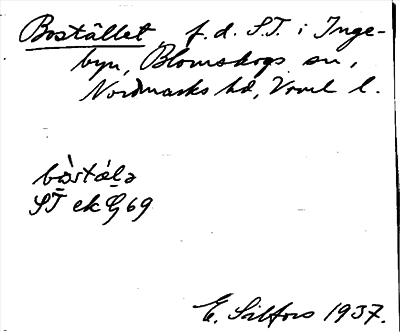 Bostållet, f.d. S.T. i Inge-
byn, Blomskogs sn,
Nordmarks hd, Vrml l.
bò̱̱stálə
ST ek G 69
E. Silfors 1937.